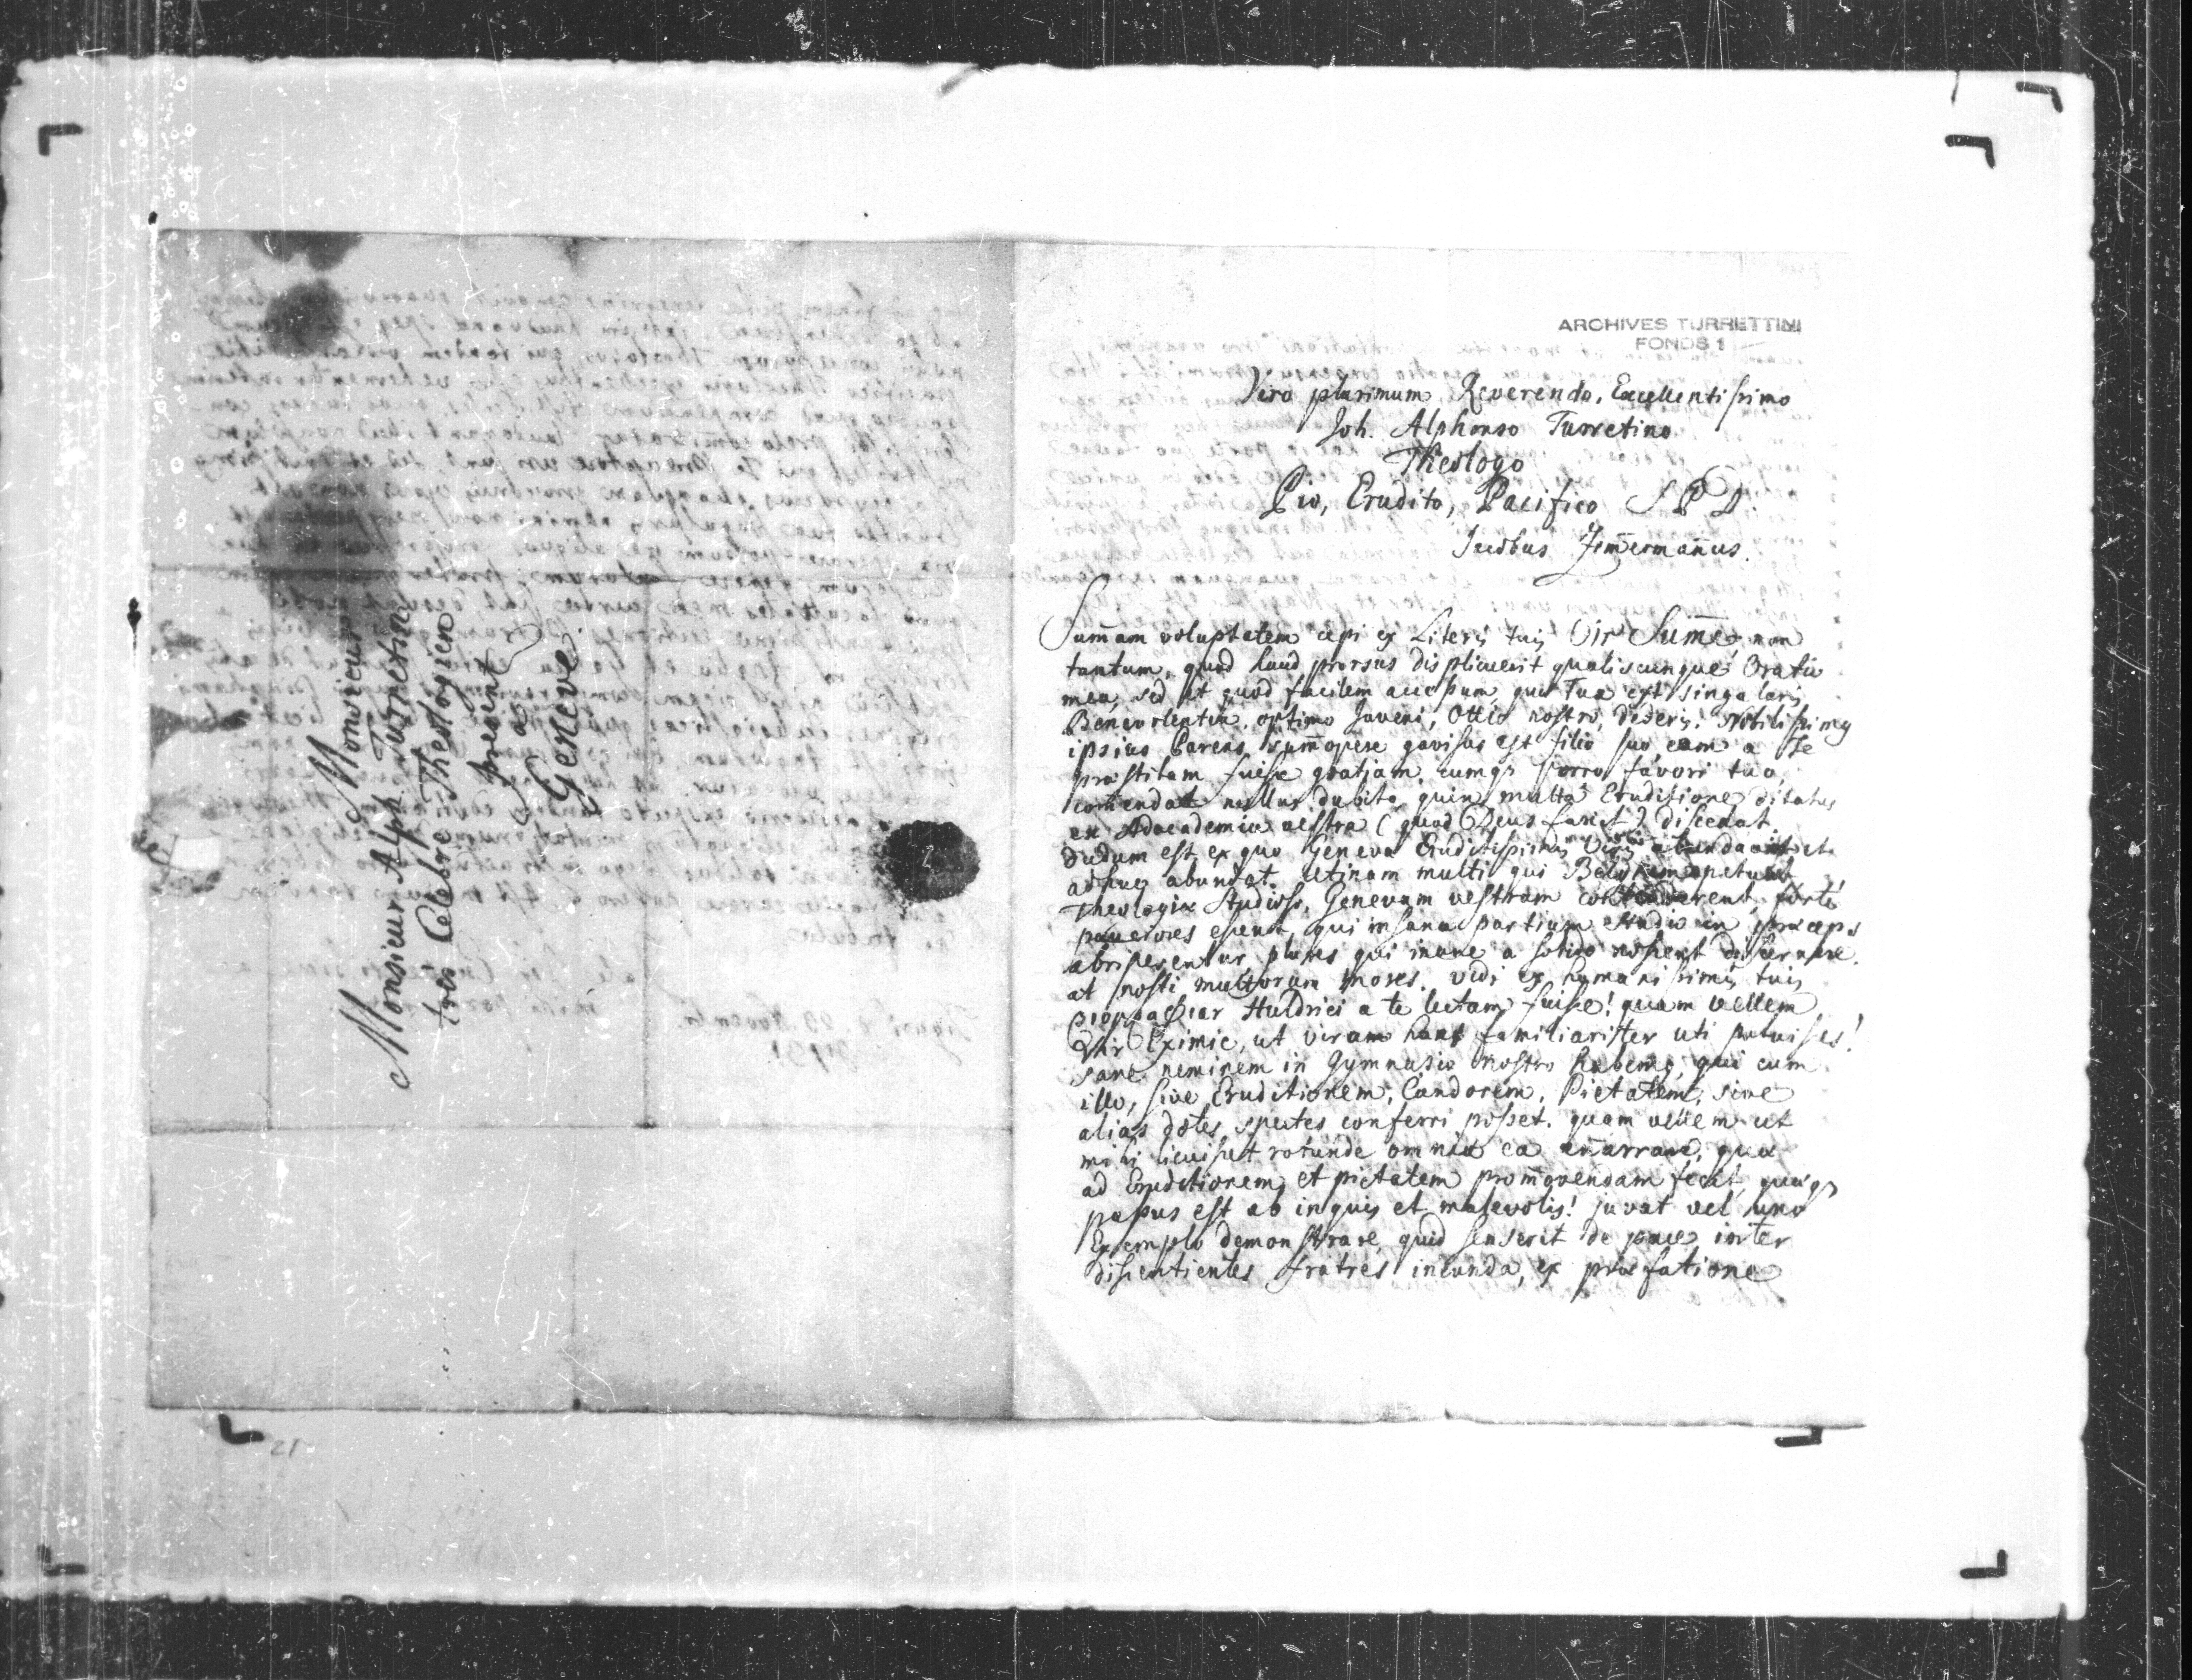 Monsieur
Monsieur Alph. Turretin
tres Celebre Theologien
present
a
Geneve.
21
ARCHIVES TURRETTINI
FONDS 1
Viro plurimum Reverendo, Excellentissimo
Joh. Alphonso Turretino
Theologo
Pio, Erudito, Pacifico S P D.
Jacobus Zim̅erman̅us.
Sum̅am voluptatem cepi ex Literis tuis Vir Sum̅e, non
tantum, quod haud prorsus displicuerit qualiscunque Oratio
mea, sed et quod facilem accessum, quae Tua est singularis
Benevolentia, optimo Juveni, Ottio nostro, dederis. Nobilissimus
ipsius Parens sum̅opere gavisus est filio suo eam a Te
praestitam fuisse gratiam, eumqs porro favori tuo
com̅endat nullus dubito, quin multa Eruditione ditatus
ex Adcademia vestra (quod Deus faxit) discedat
dudum est, ex quo Geneva Eruditissimis Viris et
adhuc abundat. Utinam multi qui petunt
Theologiae Studiosi, Genevam vestram forte
pauciores essent, qui insana partium studio in praeceps
abriperentur, plures qui inane a solido nossent discernere.
at nosti multorum mores. Vidi ex humanissimis tuis
Huldrici a te lectam fuisse! quam vellem
Vir Eximie, ut viro familiariter uti potuisses!
sane neminem in Gymnasio nostro habemus, qui cum
illo, sive Eruditionem, Candorem, Pietatem, sive
alias dotes spectes conferri posset. quam vellem ut
mihi licuisset rotunde omnia ea en̅arrare, quae
ad Eruditionem et pietatem prom̅ovendam fecit, quaeqs
passus est ab iniquis et malevolis! juvat vel uno
Exemplo demonstrare, quid senserit de pace inter
dissentientes fratres ineunda, ex praefatione